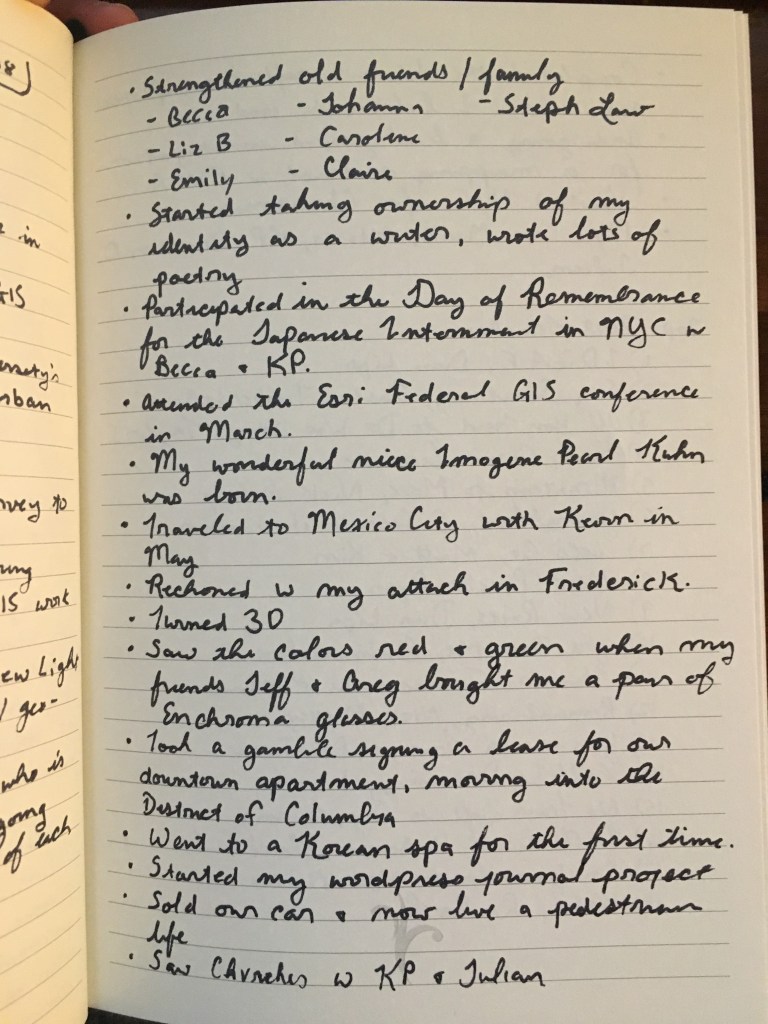 8
• Strengthened old friends / family
- Becca - Johanna - Steph Law
- Liz B - Caroline
- Emily - Claire
• Started taking ownership of my
identity as a writer, wrote lots of
poetry
• Participated in the Day of Remembrance
for the Japanese Internment in NYC w
Becca + KP.
• Attended the Esri Federal GIS conference
in March.
• My wonderful niece Imogene Pearl Kuhn
was born.
• Traveled to Mexico City with Kevin in
May
• Reckoned w my attack in Frederick.
• Turned 30
• Saw the colors red + green when my
friends Jeff + Greg bought me a pair of
Enchroma glasses.
• Took a gamble signing a lease for our
downtown apartment, moving into the
District of Columbia
• Went to a Korean spa for the first time.
• Started my wordpress journal project
• Sold our car + now live a pedestrian
life
• Saw CHVRCHES w KP + Julian
in
GIS
ersity's
rban
rvey to
ring
IS work
ew Light
/ geo-
who is
going
of each